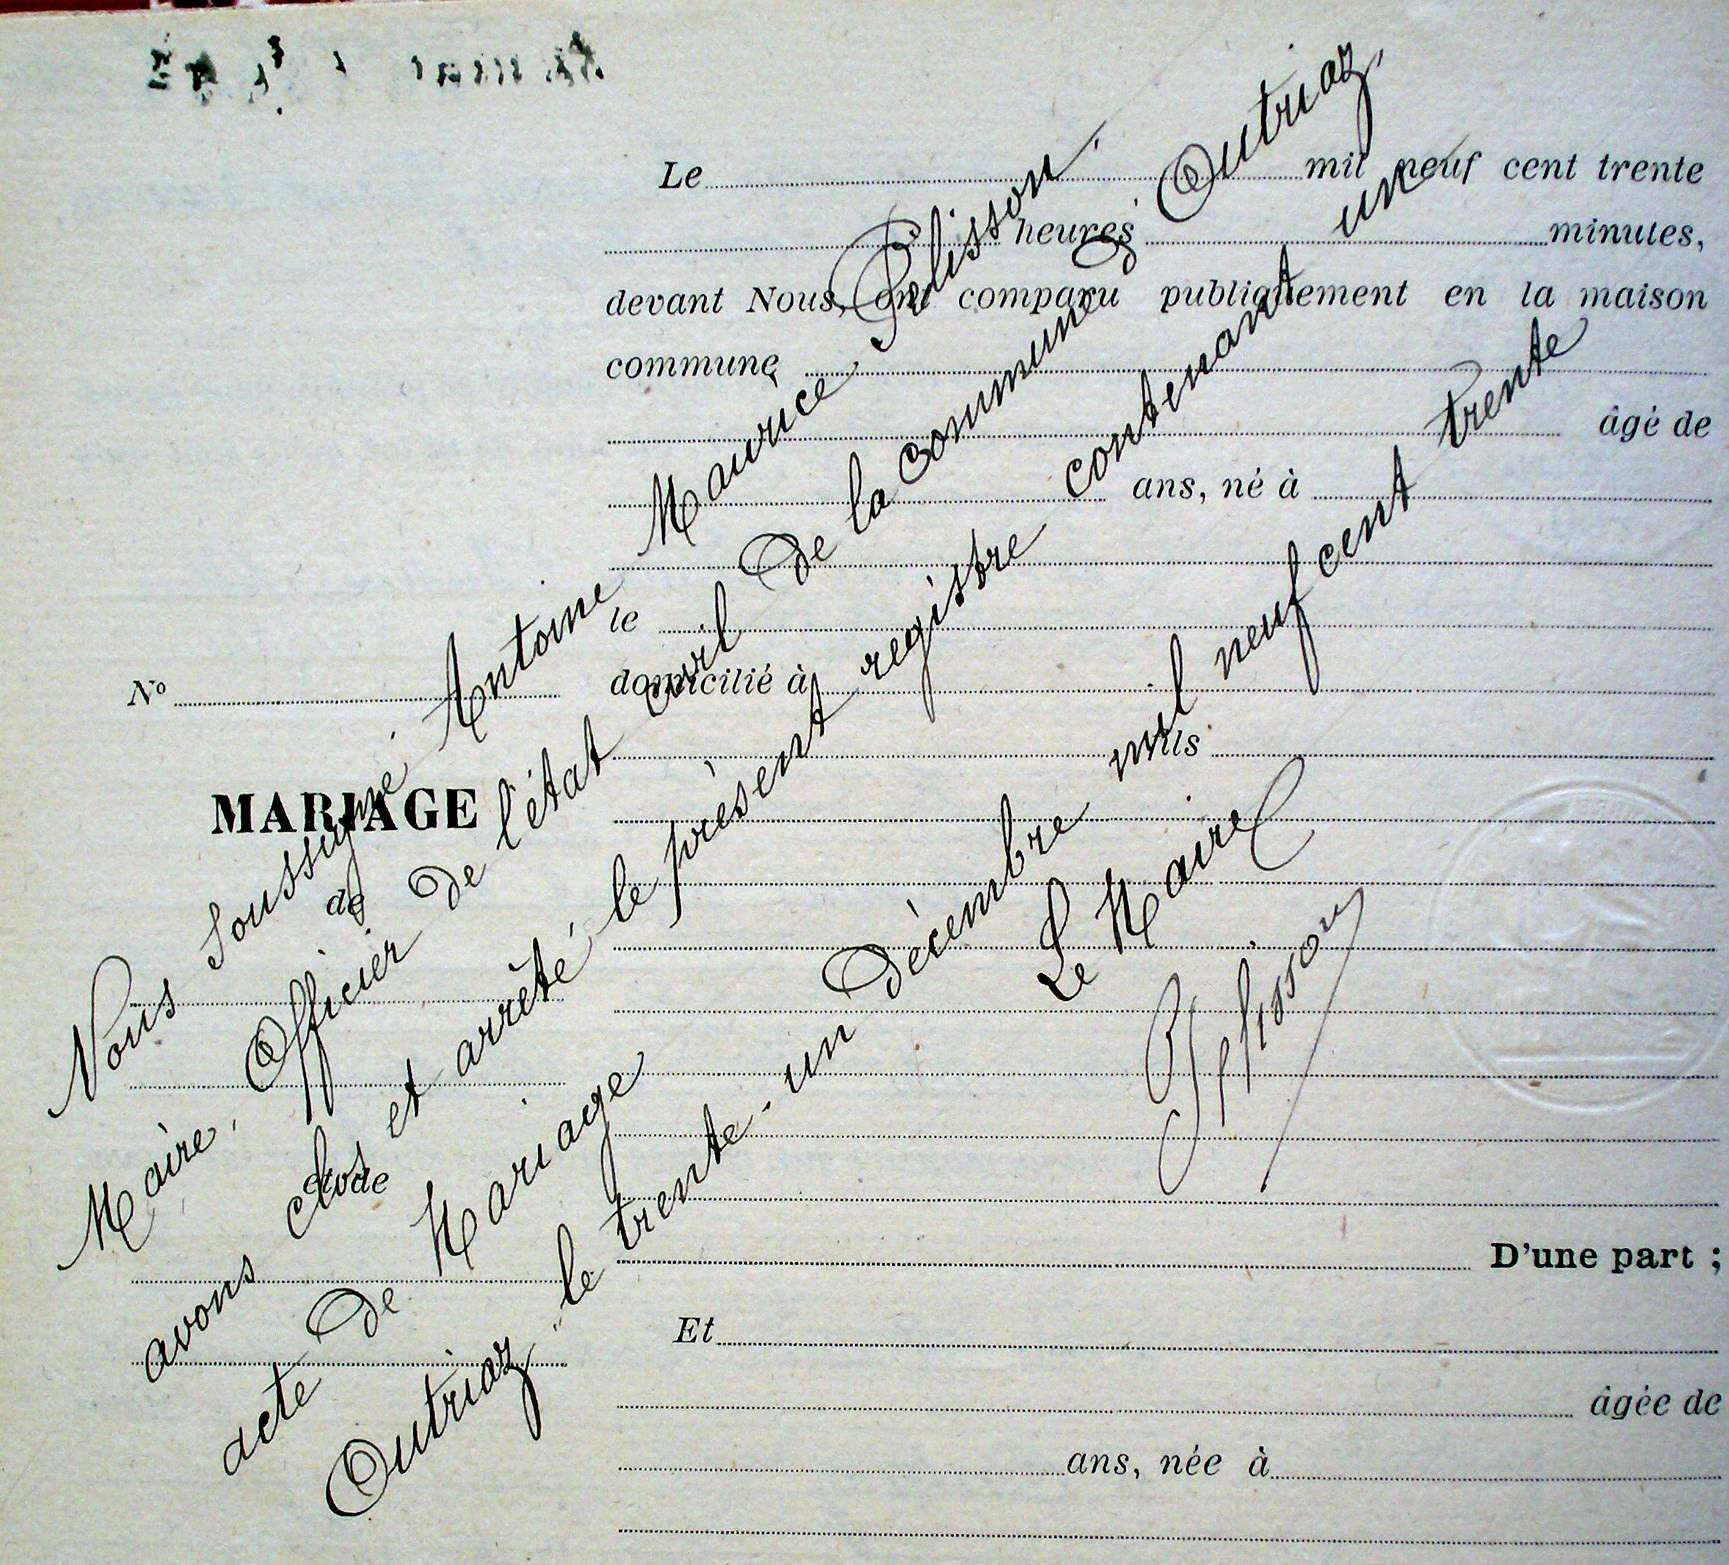 Le mil neuf cent trente
heures minutes,
devant Nous, ont comparu publiquement en la maison
commune
âgé de
ans, né à
le
domicilié à
fils
D'une part ;
Et
âgée de
ans, née à
No
MARIAGE
de
et de
Nous soussigné Antoine Maurice Pélisson.
Maire, Officier de l'état civil de la commune d'Outriaz,
avons clos et arrêté le présent registre contenant un
acte de Mariage
Outriaz le trente-un décembre mil neuf cent trente
Le Maire
Pelisson